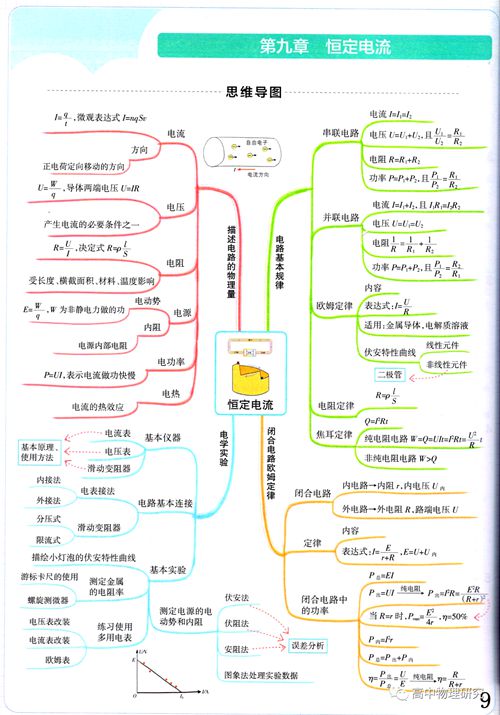 第九章 恒定电流
思维导图
I=q/t,微观表达式 I=nqSv
电流
方向
正电荷定向移动的方向
自由电子
电流方向
U=W/q,导体两端电压 U=IR
电压
产生电流的必要条件之一
R=U/I,决定式 R=ρl/S
电阻
受长度、横截面积、材料、温度影响
电动势
E=W/q,W 为非静电力做的功
电源
内阻
电源内部电阻
电功率
P=UI,表示电流做功快慢
电热
电流的热效应
描述电路的物理量
电路基本规律
恒定电流
电流 I=I₁=I₂
串联电路
电压 U=U₁+U₂,且U₁/U₂=R₁/R₂
电阻 R=R₁+R₂
功率 P=P₁+P₂,且P₁/P₂=R₁/R₂
电流 I=I₁+I₂,且 I₁R₁=I₂R₂
并联电路
电压 U=U₁=U₂
电阻1/R=1/R₁+1/R₂
功率 P=P₁+P₂,且P₁/P₂=R₂/R₁
内容
欧姆定律
表达式:I=U/R
适用:金属导体,电解质溶液
伏安特性曲线
线性元件
非线性元件
二极管
电阻定律
R=ρl/S
焦耳定律
Q=I²Rt
纯电阻电路 W=Q=UIt=I²Rt=U²/R t
非纯电阻电路 W>Q
电学实验
闭合电路欧姆定律
基本仪器
电流表
电压表
滑动变阻器
基本原理,
使用方法
电路基本连接
电表接法
内接法
外接法
滑动变阻器
分压式
限流式
基本实验
描绘小灯泡的伏安特性曲线
测定金属
的电阻率
游标卡尺的使用
螺旋测微器
练习使用
多用电表
电压表改装
电流表改装
欧姆表
测定电源的电
动势和内阻
伏安法
伏阻法
安阻法
误差分析
图象法处理实验数据
U/V
E
O
I/A
闭合电路
内电路→内阻 r,内电压 U内
外电路→外电阻 R,路端电压 U
定律
内容
表达式:I=E/(r+R),E=U+U内
闭合电路中
的功率
P总=EI
P出=UI 纯电阻→ P出=I²R=E²R/(R+r)²
当 R=r 时,Pmax=E²/4r,η=50%
P内=I²r
P总=P出+P内
η=P出/P总=U/E 纯电阻→ η=R/(R+r)
高中物理研究
9